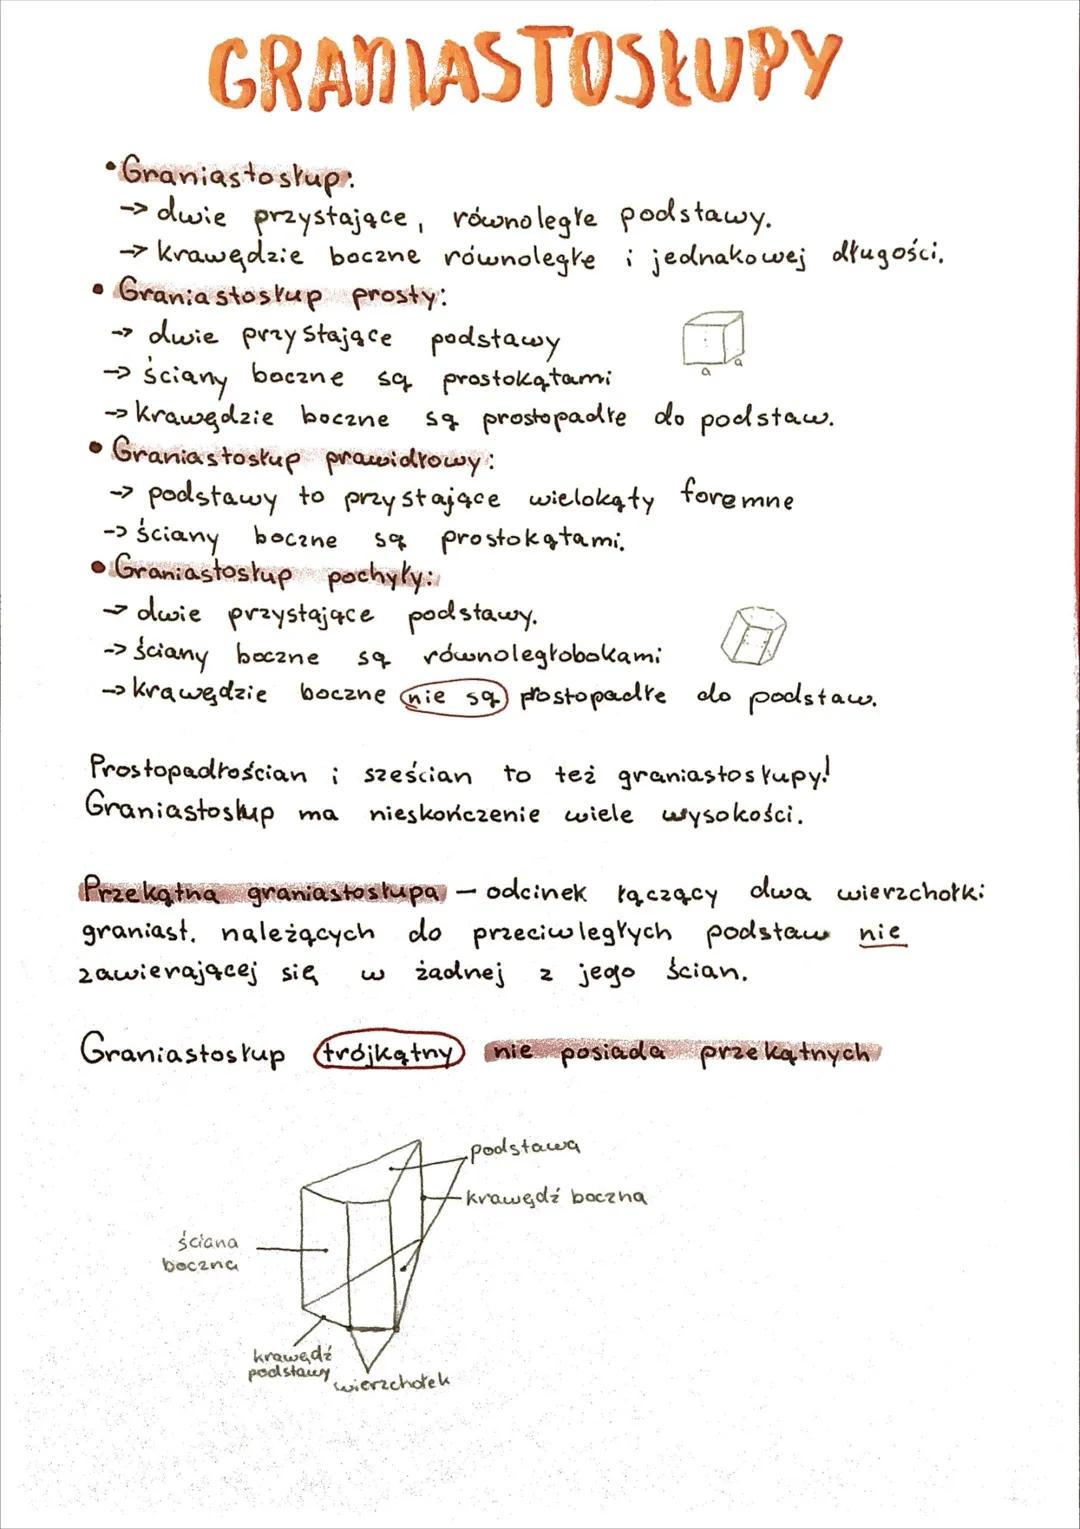 GRANIASTOSŁUPY
• Graniastosłup:
-> dwie przystające, równoległe podstawy.
-> krawędzie boczne równoległe i jednakowej długości.
• Graniastosłup prosty:
-> dwie przystające podstawy
-> ściany boczne są prostokątami
a
a
-> krawędzie boczne są prostopadłe do podstaw.
• Graniastosłup prawidłowy:
-> podstawy to przystające wielokąty foremne
-> ściany boczne są prostokątami.
• Graniastosłup pochyły:
-> dwie przystające podstawy.
-> ściany boczne są równoległobokami
-> krawędzie boczne nie są prostopadłe do podstaw.
Prostopadłościan i sześcian to też graniastosłupy!
Graniastosłup ma nieskończenie wiele wysokości.
Przekątna graniastosłupa – odcinek łączący dwa wierzchołki
graniast. należących do przeciwległych podstaw nie
zawierającej się w żadnej z jego ścian.
Graniastosłup trójkątny nie posiada przekątnych
podstawa
krawędź boczna
ściana
boczna
krawędź
podstawy
wierzchołek